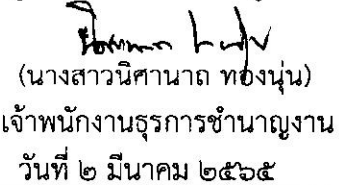 (นางสาวนิศานาถ ทองนุ่น)
เจ้าพนักงานธุรการชำนาญงาน
วันที่ ๒ มีนาคม ๒๕๖๕